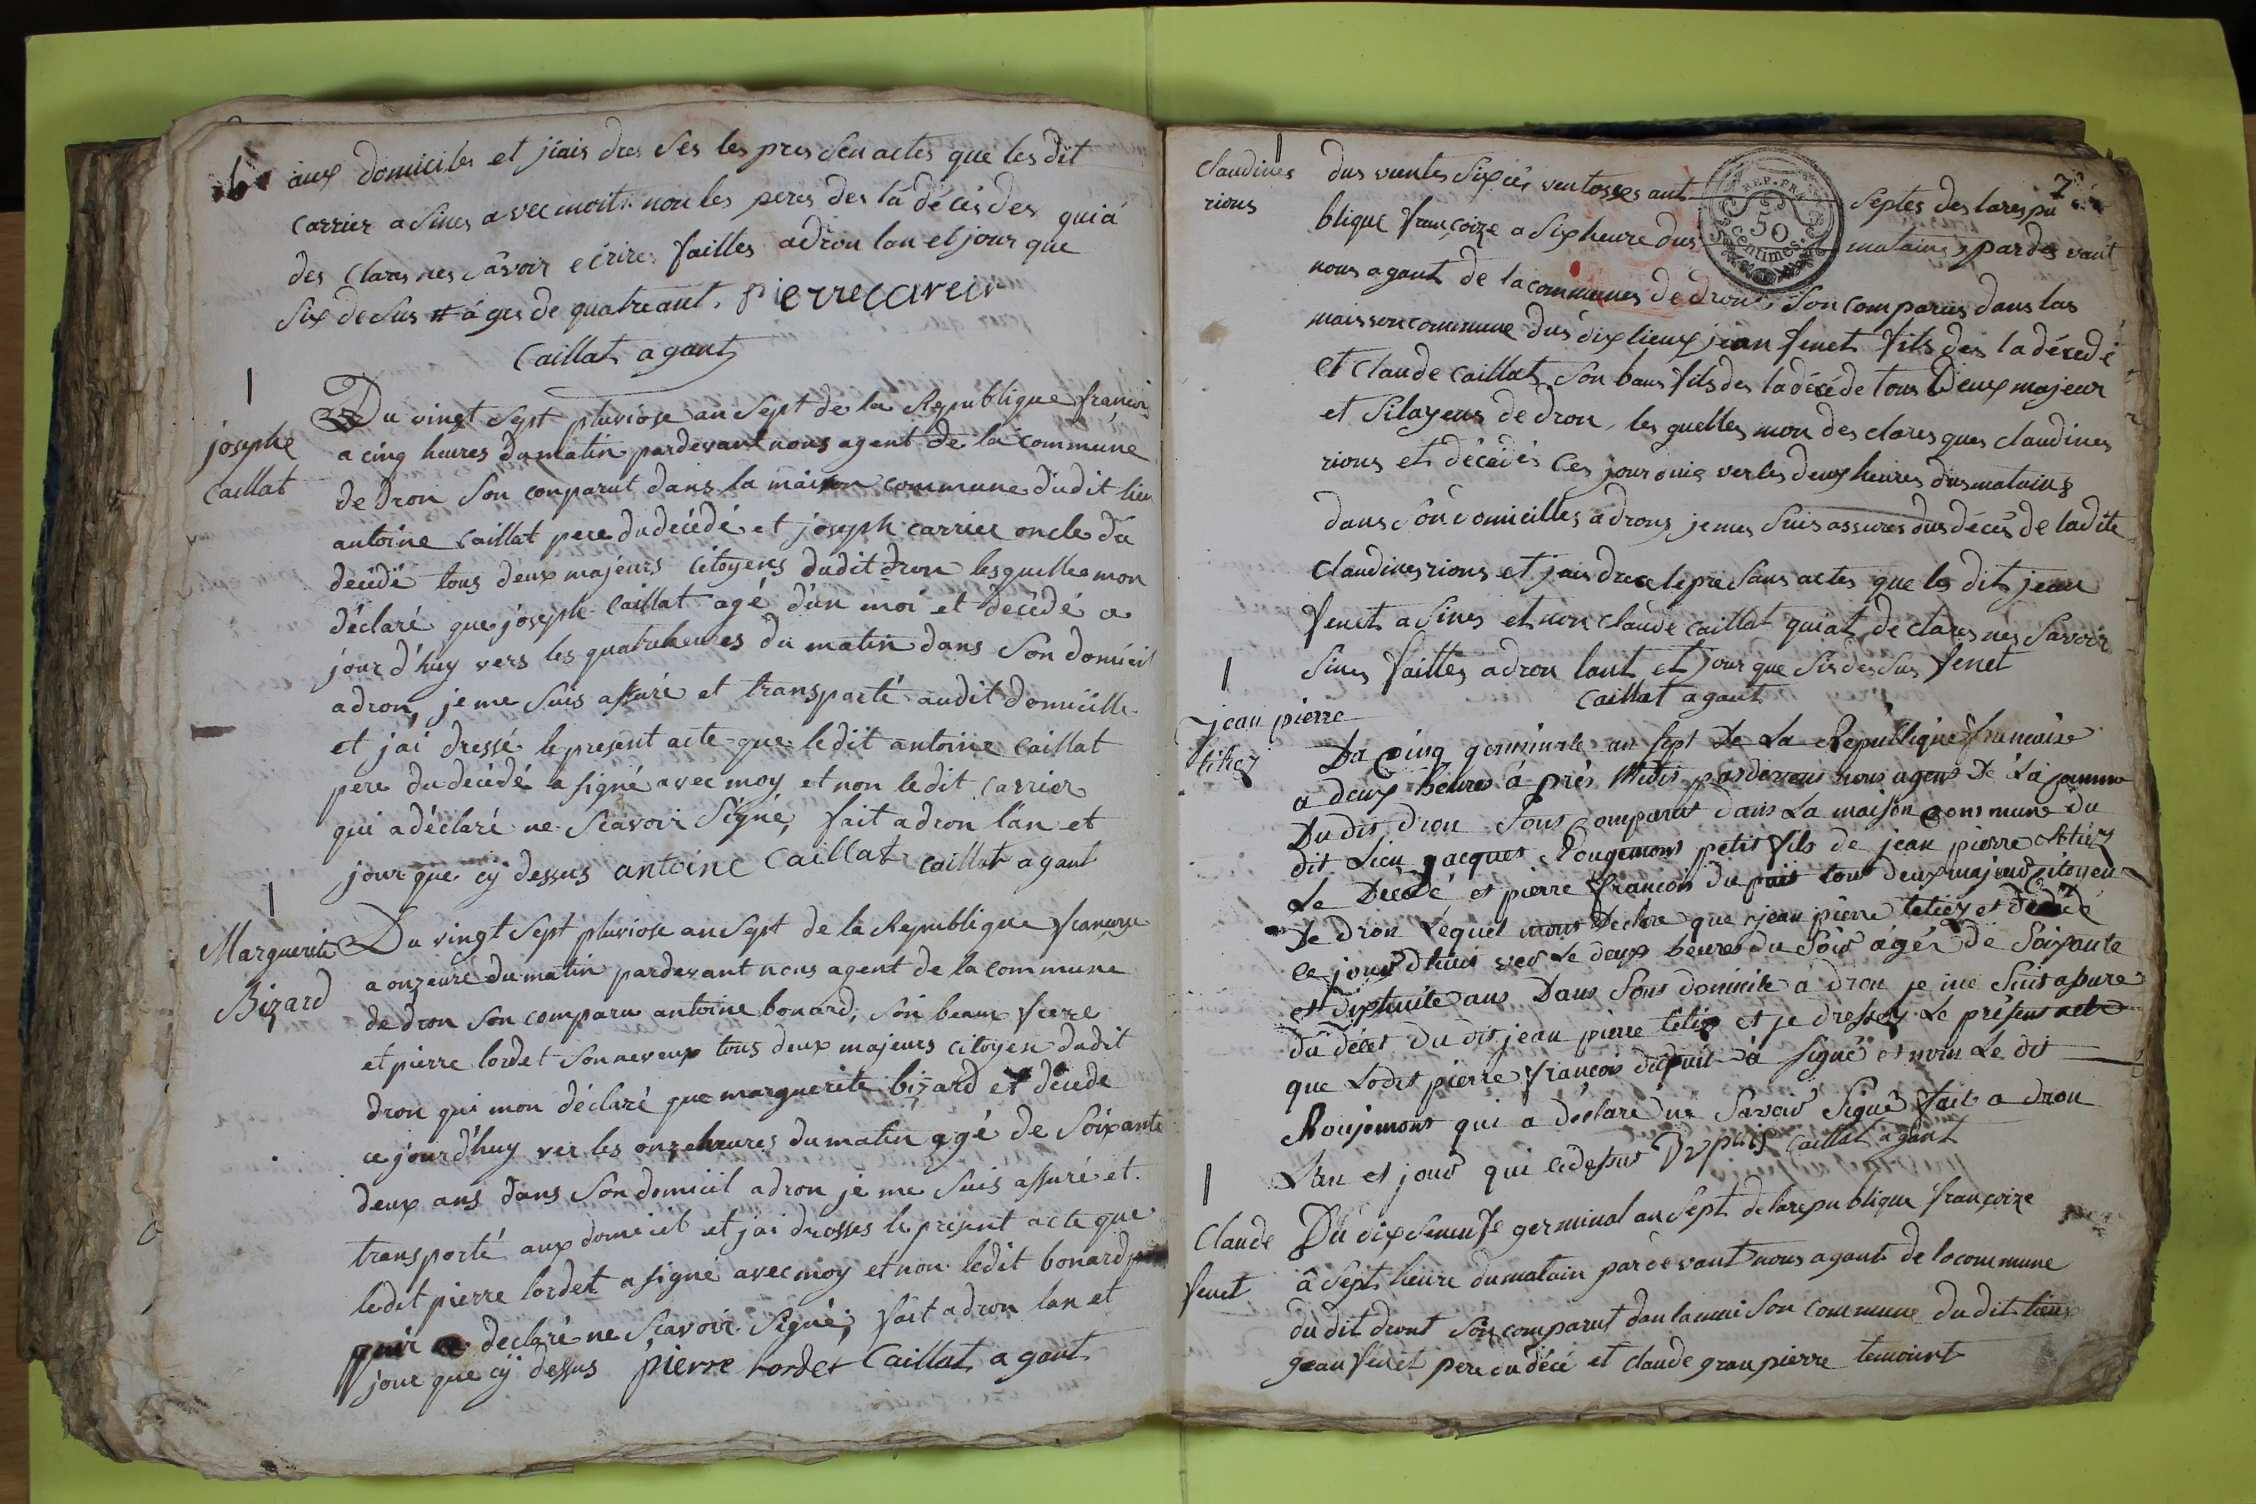 6
aux domiciles et jiais dres Ses les pres Sen actes que les dit
Carrier a Sines avec moit. non les peres des la décés des qui a
des Clares nes Sâvoir ecrires failles adron lan et jour que
Six de Sus # â ges de quatre ant. pierre carrier
Caillat agant
josephe
Caillat
Du vingt Sept pluviose an Sept de la Republique françoi
a cinq heures du matin pardevant nous agent de la commune
de dron Son conparut dans la maison commune dudit lieu
antoine Caillat pere du decédé et joseph carrier oncle du
decédé tous deux majeurs Citoyens dudit dron lesquellee mon
déclaré que joseph Caillat agé d'un moi et decédé a
jour d'huy vers les quatreheures du matin dans Son domicil
adron, je me Suis assuré et transparté audit domicille
et j'ai dressé le present acte que ledit antoine Caillat
pere du decédé a signé avec moy et non ledit Carrier
qui a déclaré ne Scavoir Signé, fait adron l'an et
jour que cy dessus antoine Caillat Caillat agant
Marguerite
Bizard
Du vingt Sept pluviose an Sept de la Republique francoise
a onzeure du matin pardevant nous agent de la commune
de dron Son comparu antoine bonard, Son beaux frere
et pierre lordet Son neveux tous deux majeurs citoyen dudit
dron qui mon déclaré que marguerite bizard et decede
ce jourd'huy ver les onzeheures du matin agé de Soixante
deux ans dans Son domicil adron je me Suis assuré et
transporté aux domicil et j'ai drosses le present acte que
ledit pierre lordet a signé avec moy et non ledit bonard
qui a declaré ne Scavoir Signé, fait adron lan et
jour que cy dessus pierre Lordet Caillat agant
7
REP. FRA.
50
centimes.
Claudines
rions
dus vuentes Sixiés ventosses ant Septes des lares pu
blique françoize a Six heure dus matains, par des vant
nous agant de la communes de dron, Son comparus dans las
maisson commune dus dix lieux jean fenet fils des la décedé
et Claude Caillat Son baus fils des la décede tous Deux majeur
et Silayens de dron, les quelles mon des clares ques claudines
rions et décédés Ces jour ouis ver les deux heures dus matains
dans Son domicilles a drons jemes Suis assures dus décés de ladite
Claudines rions et jais drece le pre Sans actes que les dit jean
fenet a Sines et non claude Caillat quiat de clares nes Savoir
Sines failles adron lant et jour que Sis des Sus fenet
Caillat agant
jean pierre
titiez
Du Cinq germinale an Sept De La Republique francaise
a deux heures à près Midis pardevans nous agens De La comme
Dudis dron Sons Comparut dans La maison Commune Du
dit Lieu jacques Rougemons petit fils de jean pierre titiez
Le Décédé et pierre francois dupuis tous deux majeurs Citoyens
De dron Lequel mons Declare que jean pierre tetiez et Décédé
ce jours dhuis ves Le deux heures du Sois agér de Soixante
et dixhuite ans Dans Sons domicile à dron je me Suis assure
du décet Du dis jean pierre tetiez et je dressez Le présens acte
que Lodes pierre francois dupuit a signé et nons Le dis
Roujemons qui a declare ne Savois Signé fait a dron
L'an et jous qui cidesus Dupuis Caillat agant
Claude
fenet
Du dix Seneufs germinal an Sept de la republique françoize
â Sept heure du matain par de vant nous agant de la commune
du dit dront Son comparut dan la mai Son commune du dit lieux
jean fenet pere du décé et claude gran pierre temoint